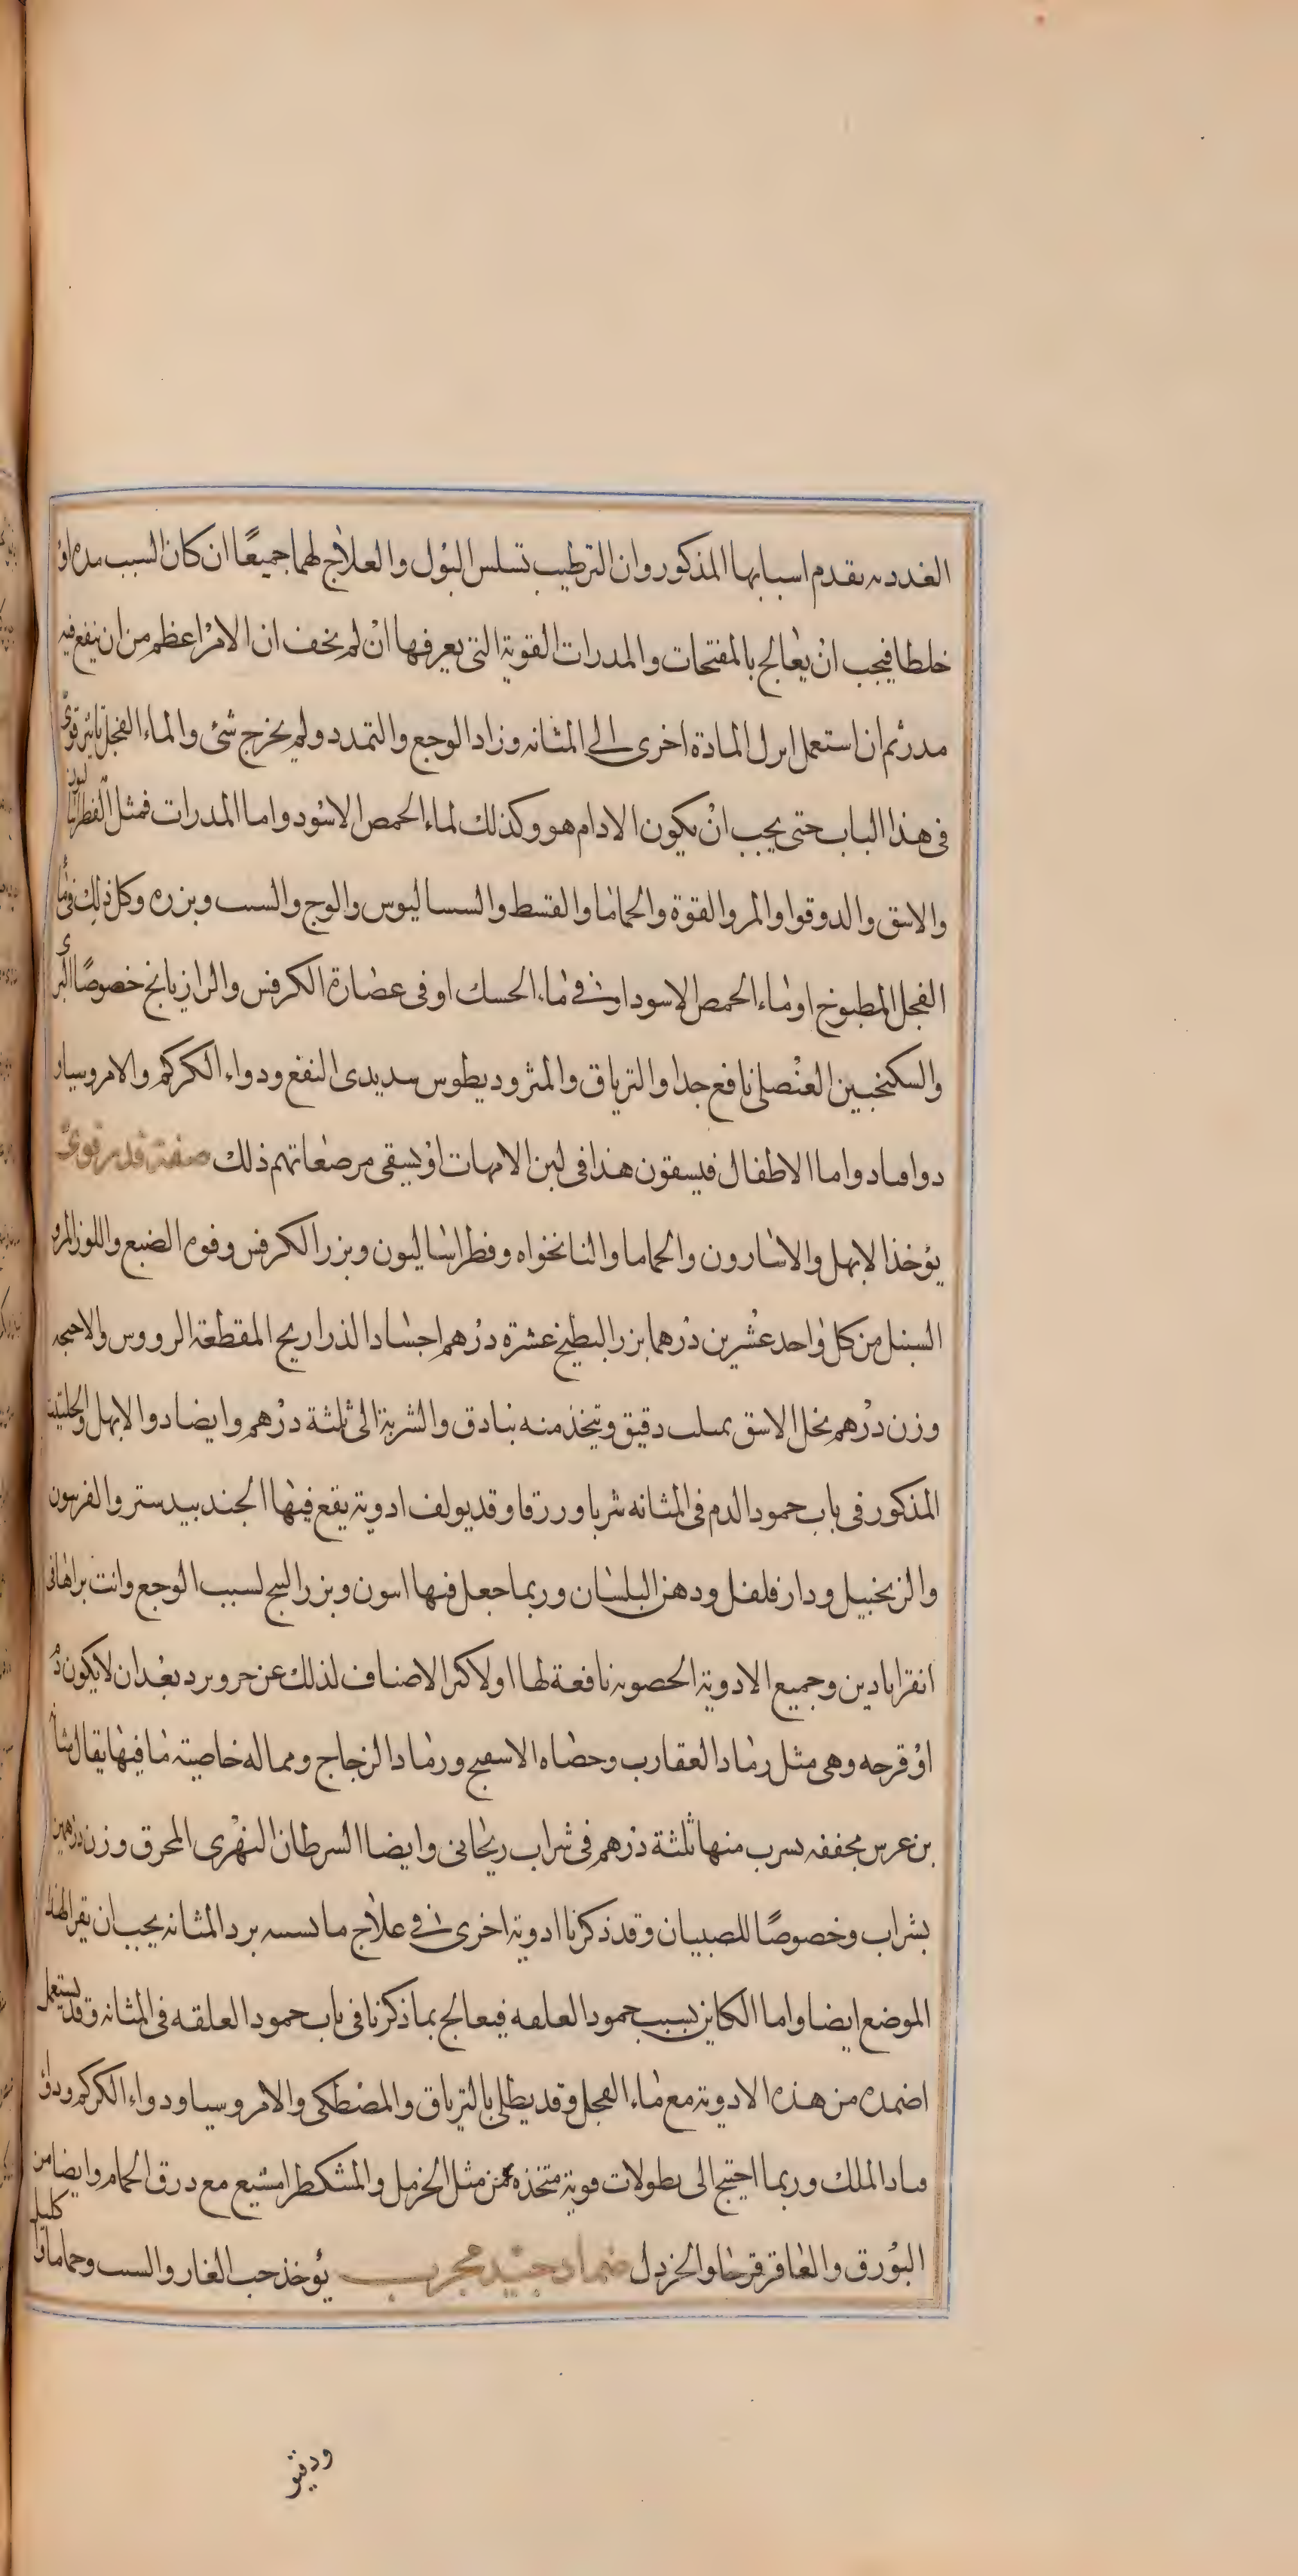 الغددىه بقدم اسبابها المذكور وان الترطيب تسلس البول والعلاج لهما جميعًا ان كان السبب مده او
خلطا فيجب ان يعالج بالمفتحات والمدرات القوية التى يعرفها ان لم يخف ان الامر اعظم من ان ينفع فيه
مدر ثم ان استعمل ابرل المادة اخرى الى المثانه وزاد الوجع والتمدد ولم يخرج شئ والماء الفجل تاثير قوى
فى هذا الباب حتى يجب ان يكون الادام هو وكذلك لماء الحمص الاسود واما المدرات فمثل الفطراساليون
والاسق والدوقوا والمر والقوة والحماما والقسط والسساليوس والوج والسىب وبزره وكل ذلك فى ماء
الفجل المطبوخ او ماء الحمص الاسود او فى ماء الحسك او فى عصارة الكرفس والرازيانج خصوصًا البرى
والسكنجبين العنصلى نافع جدا والترياق والمثروديطوس سديدى النفع ودواء الكركم والامروسيا و
دوا قىاد واما الاطفال فيسقون هذا فى لبن الامهات او يسقى مرضعاتهم ذلك صفة مدر قوى
يؤخذ الابهل والاسارون والحماما والنانخواه وفطراساليون وبزر الكرفس وفوم الضبع واللوز المر و
السنبل من كل واحد عشرين درهما بزر البطيخ عشرة درهم اجساد الذراريح المقطعة الرووس والاجنحه
وزن درهم نخل الاسق بمىلث دقيق ويتخذ منه بنادق والشربة الى ثلثة درهم وايضا دوا الابهل والحلتيت
المذكور فى باب حمود الدم فى المثانه شربا وزرقا وقد يولف ادوية يقع فيها الجندبيدستر والفرىىون
والزنجبيل ودارفلفل ودهن البلسان وربما جعل فيها اىىون وبزر البىج لسبب الوجع وانت براها فى
انقراباذين وجميع الادوية الحصوىه نافعة لها او لاكثر الاصناف لذلك عن حر وبرد بعد ان لا يكون دم
او قرحه وهى مثل رماد العقارب وحصاه الاسفىج ورماد الزجاج ومما له خاصية ما فيها يقال مثانه
بن عرس مجففه ىسرب منها ثلثة درهم فى شراب ريحانى وايضا السرطان النهرى المحرق وزن درهمين
بشراب وخصوصًا للصبيان وقد ذكرنا ادوية اخرى فى علاج ما ىسىىه برد المثانه يجب ان يقرا لهذا
الموضع ايضا واما الكاين بسبب حمود العلىه فيعالج بما ذكرنا فى باب حمود العلقه فى المثانه وقد يستعمل
اضمده من هذه الادوية مع ماء الفجل وقد يطلى بالترياق والمصطكى والامروسيا ودواء الكركم ودواء
قىاد الملك وربما احتيج الى ىطولات قوية متخذه من مثل الحرمل والمشكطرامشيع مع درق الحمام وايضا من
البورق والعاقرقرحا والخردل ضماد جيد مجرب يؤخذ حب الغار والسىب وحماما واكليل
ودقيو